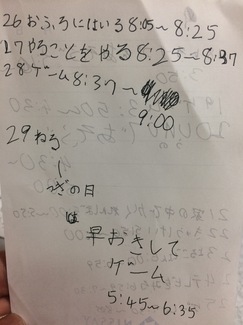 26おふろにはいる8:05～8:25
27やることをやる8:25～8:37
28ゲーム8:37～
9:00
29ねる
つぎの日
は
早おきして
ゲーム
5:45～6:35